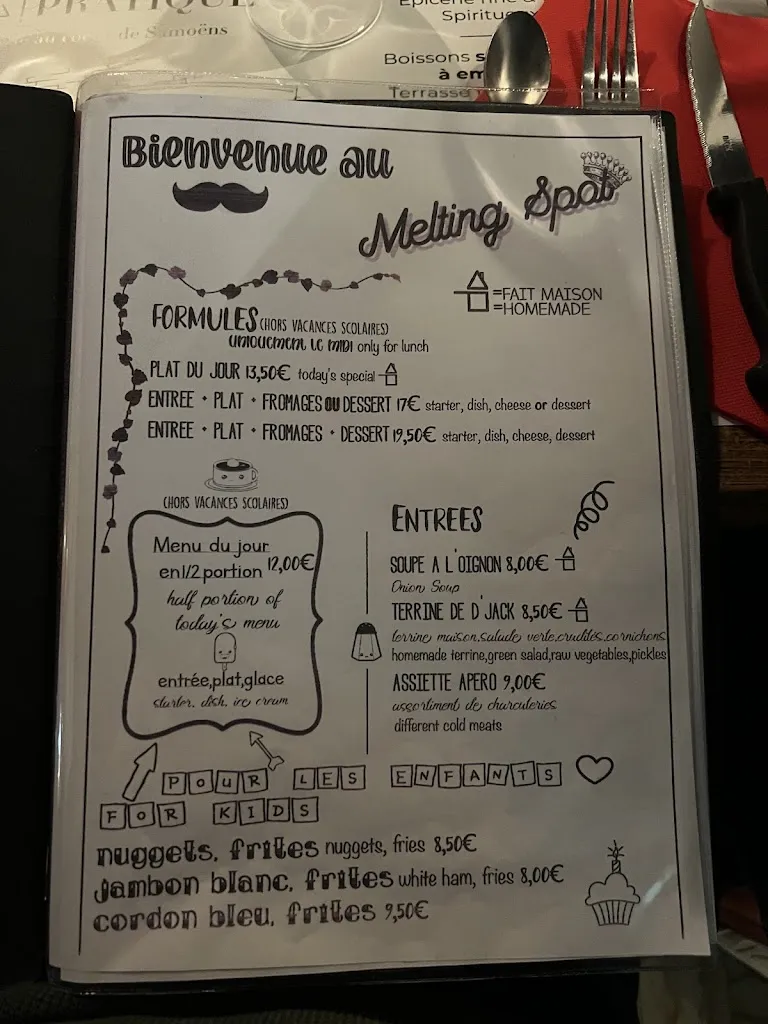 PRATIQUE
de Samoëns
Epicerie fine &
Boissons
à em
Terrasse
Bienvenue au
Melting Spot
=FAIT MAISON
=HOMEMADE
FORMULES (HORS VACANCES SCOLAIRES)
UNIQUEMENT LE MIDI only for lunch
PLAT DU JOUR 13,50€ today's special
ENTREE + PLAT + FROMAGES OU DESSERT 17€ starter, dish, cheese or dessert
ENTREE + PLAT + FROMAGES + DESSERT 19,50€ starter, dish, cheese, dessert
(HORS VACANCES SCOLAIRES)
Menu du jour
en1/2 portion 12,00€
half portion of
today's menu
entrée,plat,glace
starter, dish, ice cream
ENTREES
SOUPE A L'OIGNON 8,00€
Onion Soup
TERRINE DE D'JACK 8,50€
terrine maison,salade verte,crudités,cornichons
homemade terrine,green salad,raw vegetables,pickles
ASSIETTE APERO 9,00€
assortiment de charcuteries
different cold meats
POUR LES ENFANTS
FOR KIDS
nuggets, frites nuggets, fries 8,50€
jambon blanc, frites white ham, fries 8,00€
cordon bleu, frites 9,50€